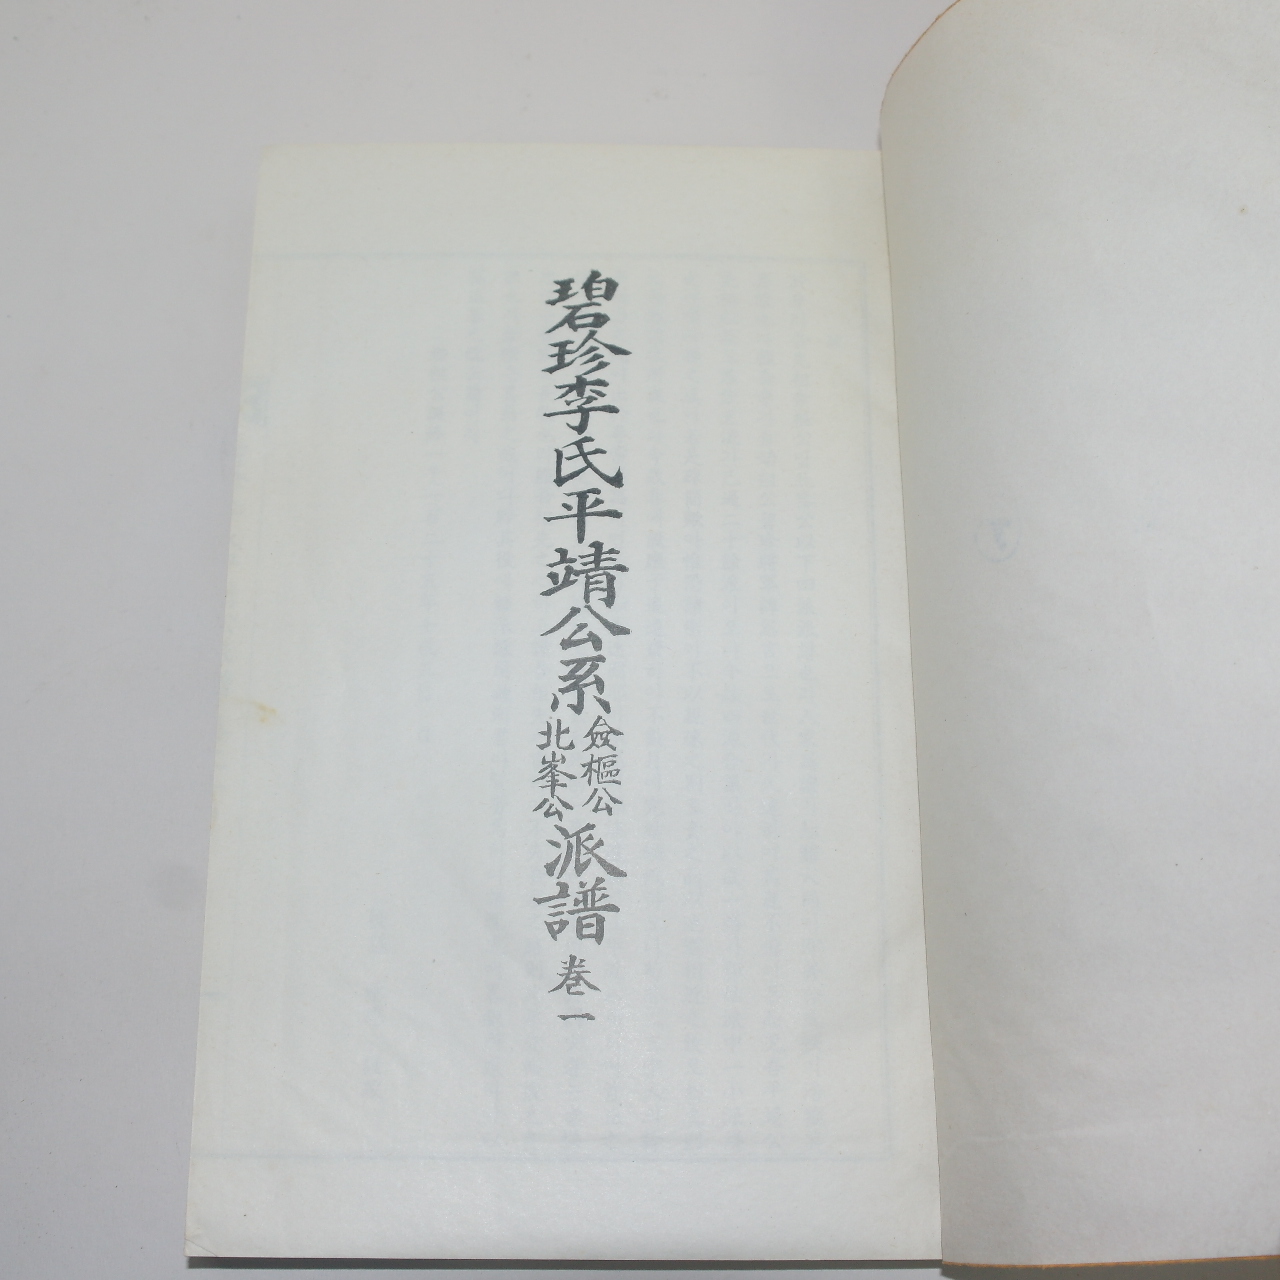 碧珍李氏平靖公系
僉樞公
北峯公
派譜
卷一